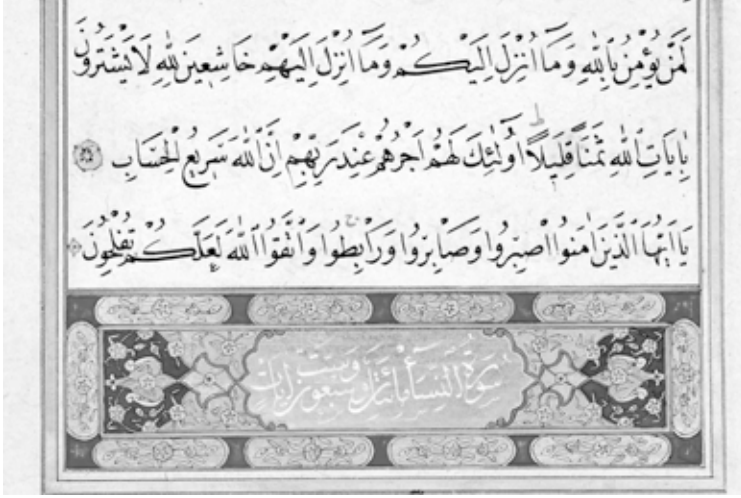 لَمَنْ يُؤْمِنُ بِاللّٰهِ وَمَا اُنْزِلَ اِلَيْكُمْ وَمَا اُنْزِلَ اِلَيْهِمْ خَاشِعِينَ لِلّٰهِ لَا يَشْتَرُونَ
بِاٰيَاتِ اللّٰهِ ثَمَنًا قَلِيلًا اُولٰئِكَ لَهُمْ اَجْرُهُمْ عِنْدَ رَبِّهِمْ اِنَّ اللّٰهَ سَرِيعُ الْحِسَابِ
يَا اَيُّهَا الَّذِينَ اٰمَنُوا اصْبِرُوا وَصَابِرُوا وَرَابِطُوا وَاتَّقُوا اللّٰهَ لَعَلَّكُمْ تُفْلِحُونَ
سورة النساء مائة وست وسبعون ايات